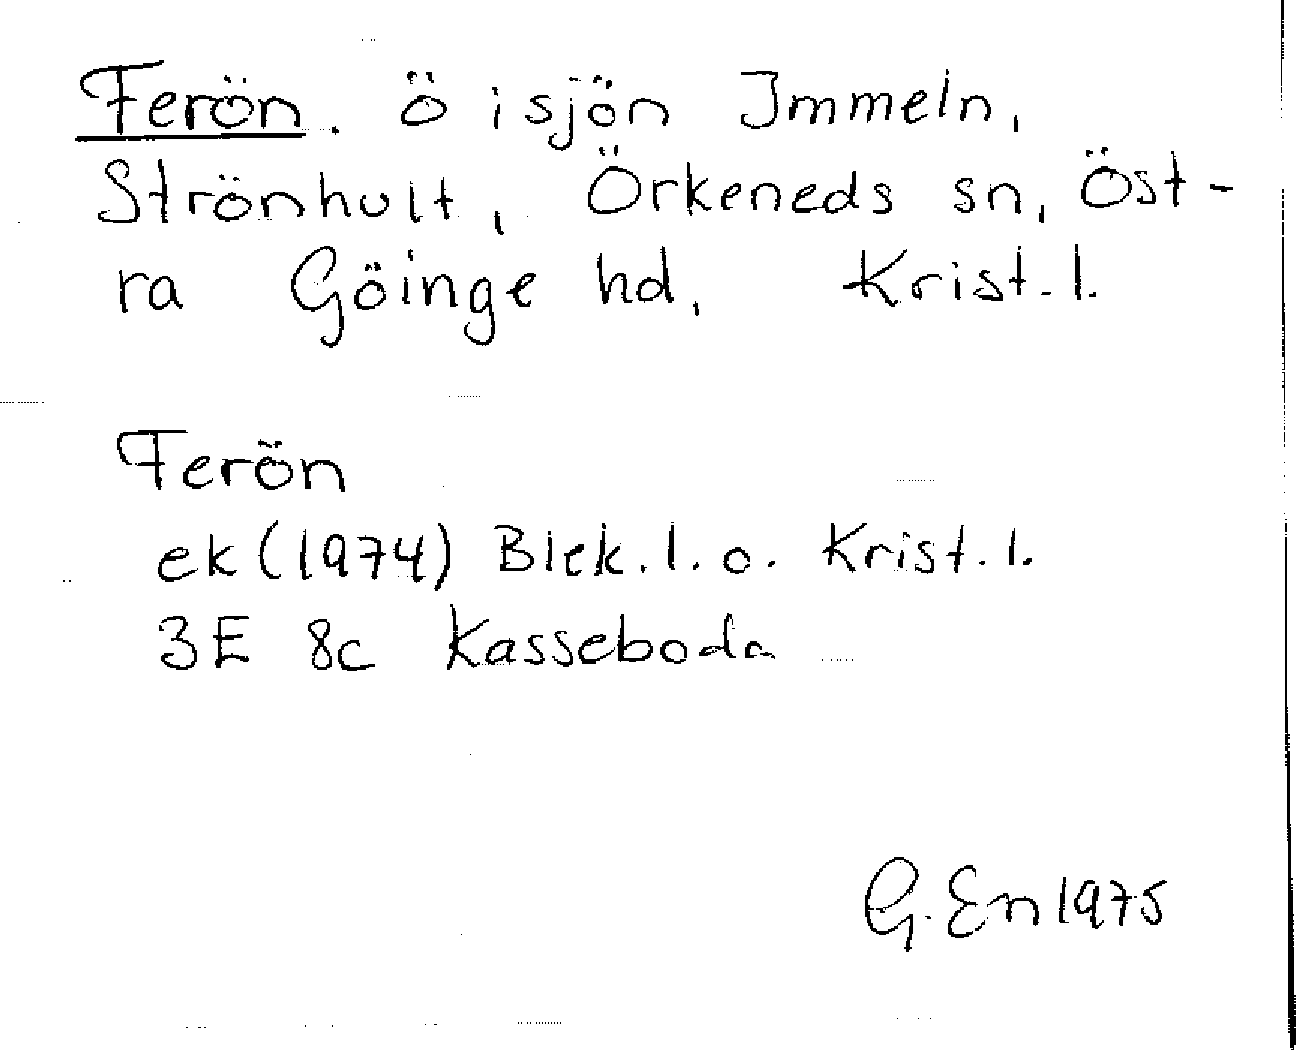 Ferön. ö i sjön Immeln,
Strönhult, Örkeneds sn, Öst-
ra Göinge hd, Krist. l.
Ferön
ek (1974) Blek. l. o. Krist. l.
3E 8c Kasseboda
G. En 1975